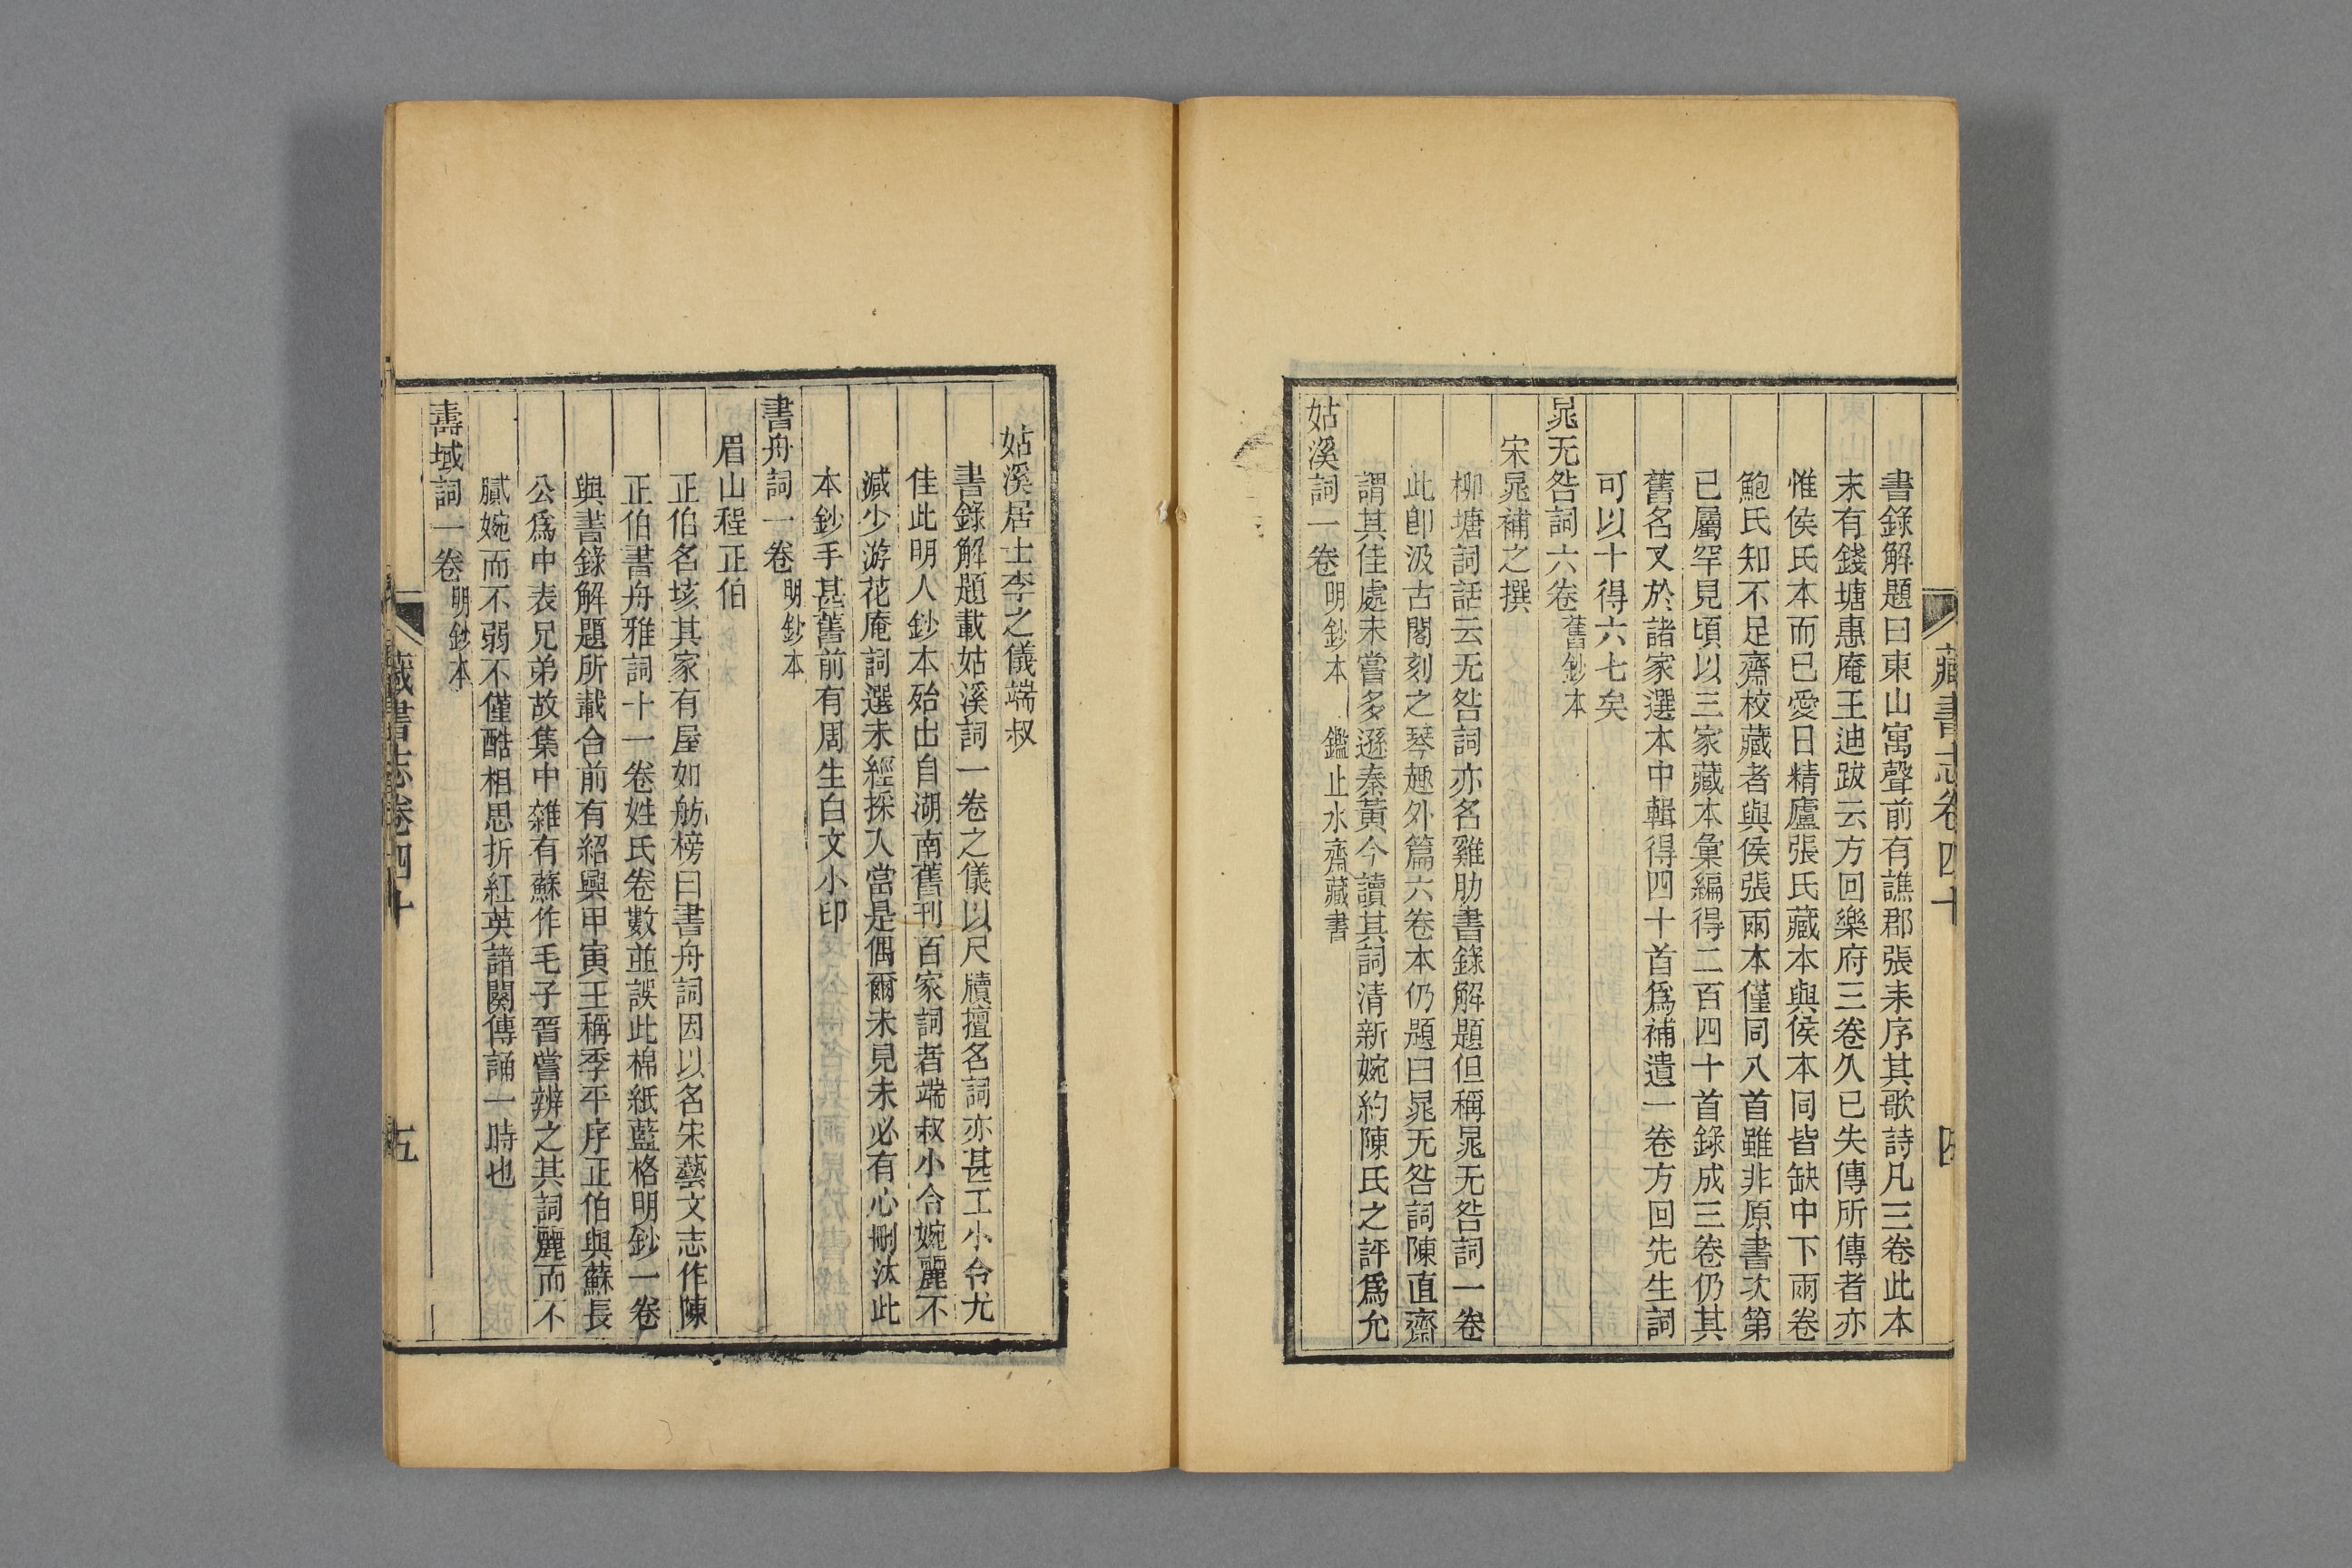 藏書志卷四十
四
書錄解題曰東山寓聲前有譙郡張耒序其歌詩凡三卷此本
末有錢塘惠庵王迪跋云方回樂府三卷久已失傳所傳者亦
惟侯氏本而已愛日精廬張氏藏本與侯本同皆缺中下兩卷
鮑氏知不足齋校藏者與侯張兩本僅同八首雖非原書次第
已屬罕見頃以三家藏本彙編得二百四十首錄成三卷仍其
舊名又於諸家選本中輯得四十首爲補遺一卷方回先生詞
可以十得六七矣
晁无咎詞六卷 舊鈔本
宋晁補之撰
柳塘詞話云无咎詞亦名雞肋書錄解題但稱晁无咎詞一卷
此卽汲古閣刻之琴趣外篇六卷本仍題曰晁无咎詞陳直齋
謂其佳處未嘗多遜秦黃今讀其詞清新婉約陳氏之評爲允
姑溪詞一卷 明鈔本 鑑止水齋藏書
姑溪居士李之儀端叔
書錄解題載姑溪詞一卷之儀以尺牘擅名詞亦甚工小令尤
佳此明人鈔本殆出自湖南舊刊百家詞者端叔小令婉麗不
減少游花庵詞選未經採入當是偶爾未見未必有心刪汰此
本鈔手甚舊前有周生白文小印
書舟詞一卷 明鈔本
眉山程正伯
正伯名垓其家有屋如舫榜曰書舟詞因以名宋藝文志作陳
正伯書舟雅詞十一卷姓氏卷數並誤此棉紙藍格明鈔一卷
與書錄解題所載合前有紹興甲寅王稱季平序正伯與蘇長
公爲中表兄弟故集中雜有蘇作毛子晉嘗辨之其詞麗而不
膩婉而不弱不僅酷相思折紅英諸闋傳誦一時也
壽域詞一卷 明鈔本
藏書志卷四十
五